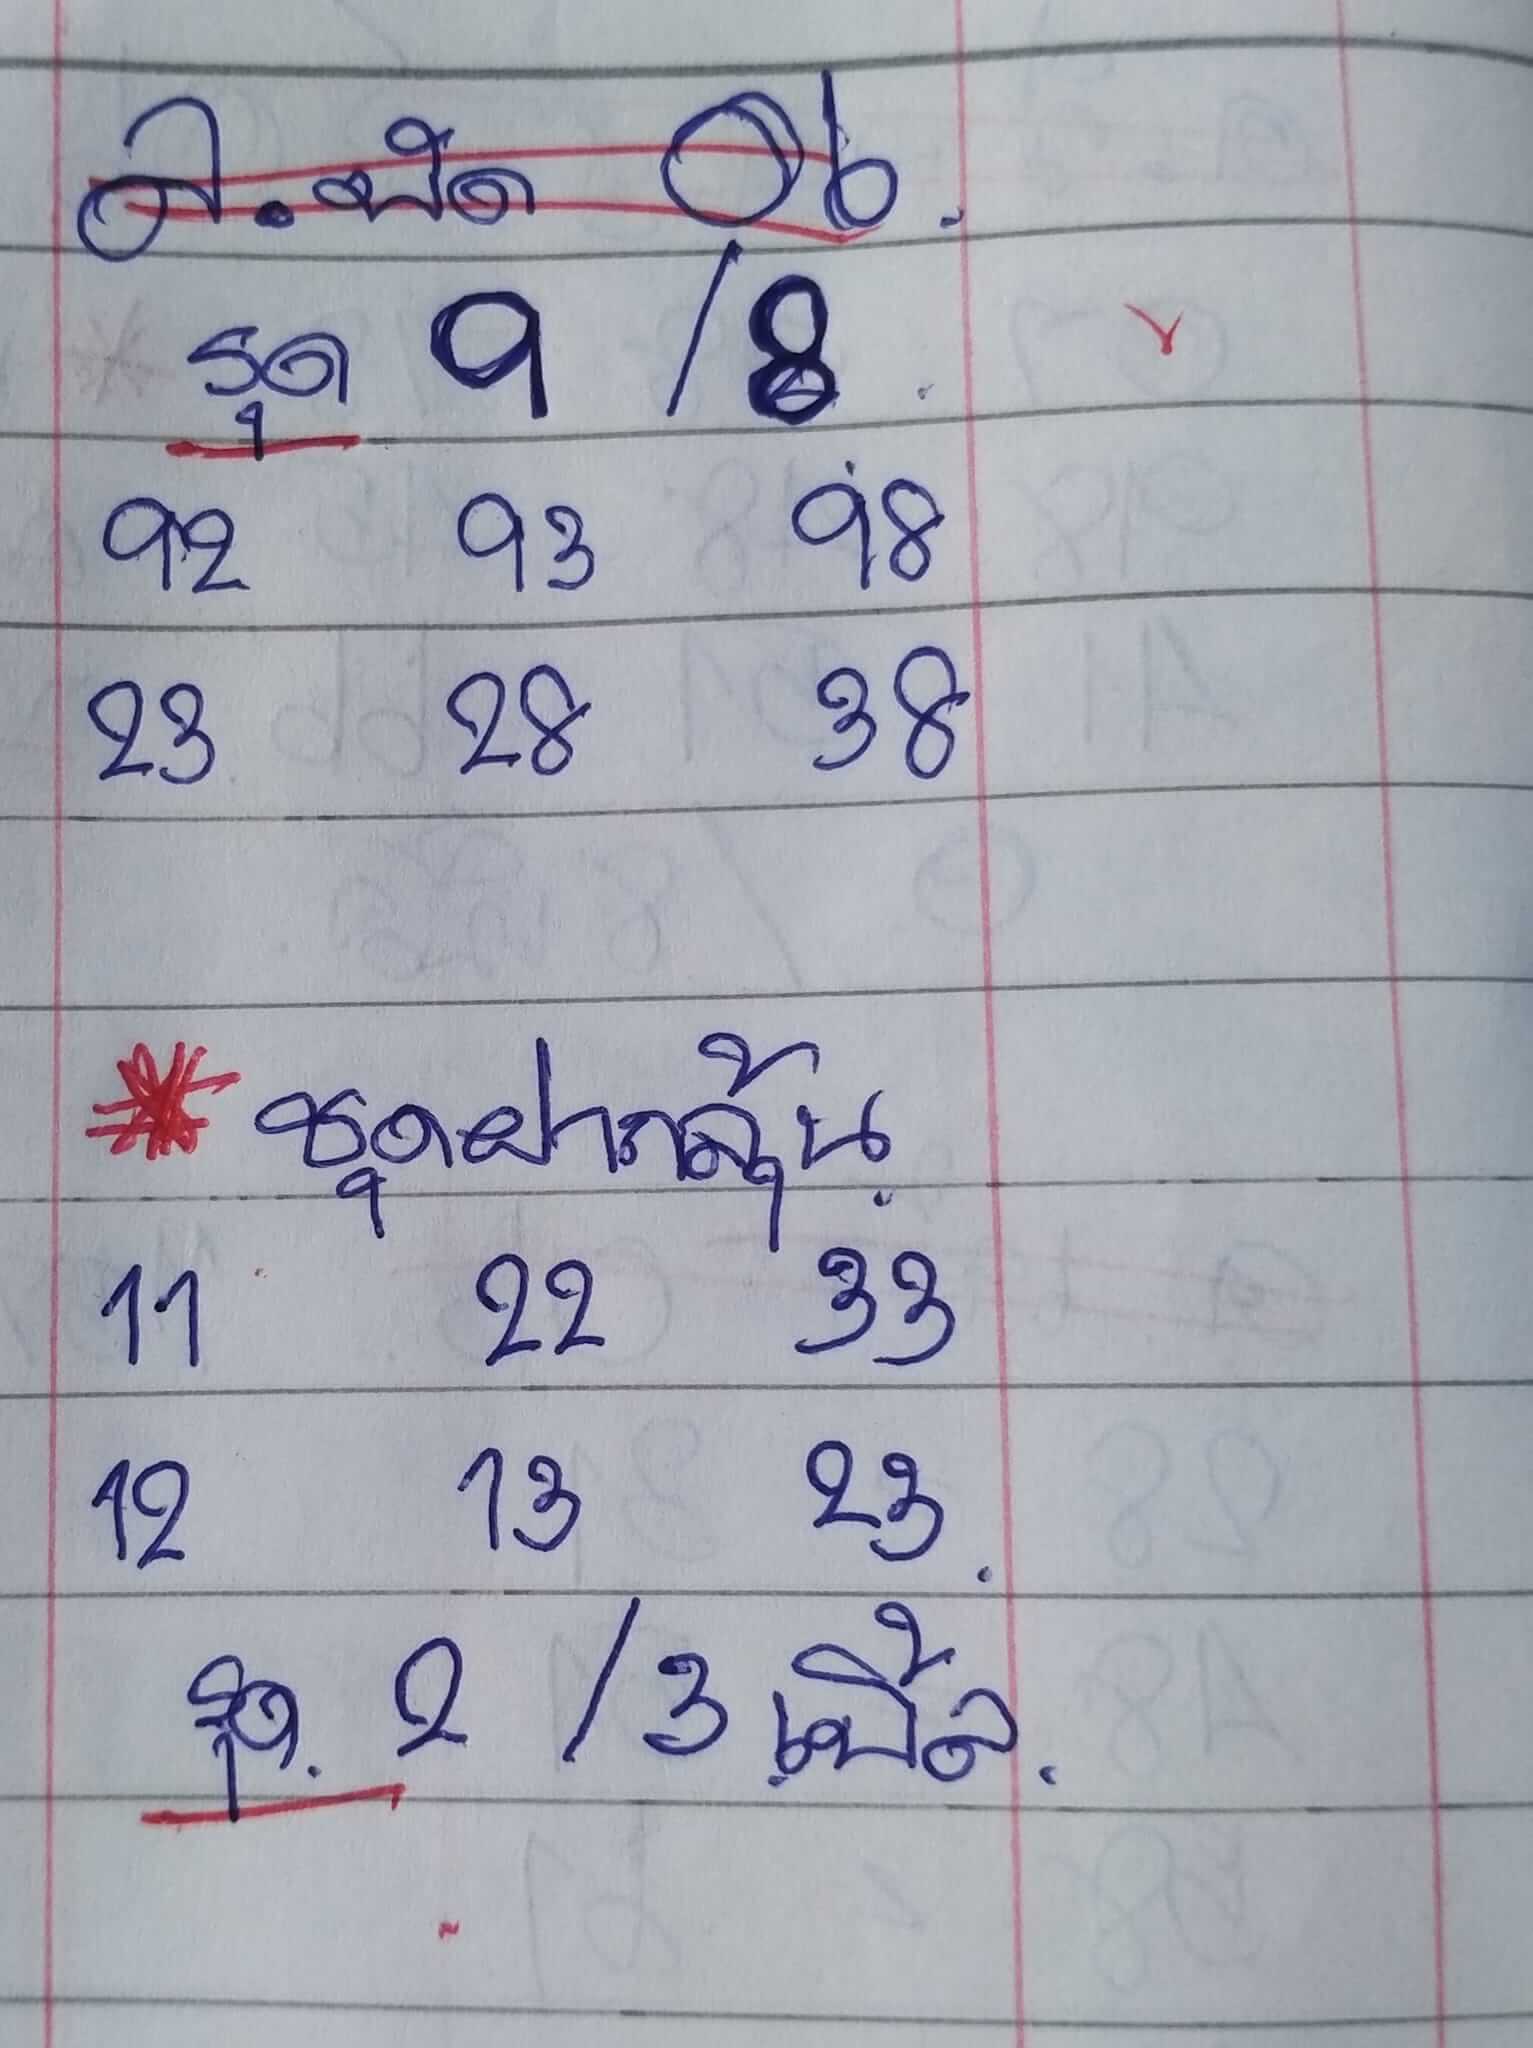 ล.พัด 06.
รูด 9 / 8.
92 93 98
23 28 38
* ชุดฝากลุ้น.
11 22 33
12 13 23.
รูด. 2 / 3 เบิ้ล.